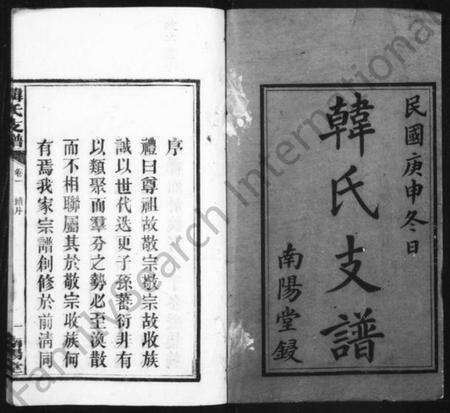 民國庚申冬日
韓氏支譜
南陽堂鋟
序
禮曰尊祖故敬宗敬宗故收族
誠以世代迭更子孫蕃衍非有
以類聚而羣分之勢必至渙散
而不相聯屬其於敬宗收族何
有焉我家宗譜創修於前淸同
韓氏支譜
卷一
一
南陽堂
FamilySearch International